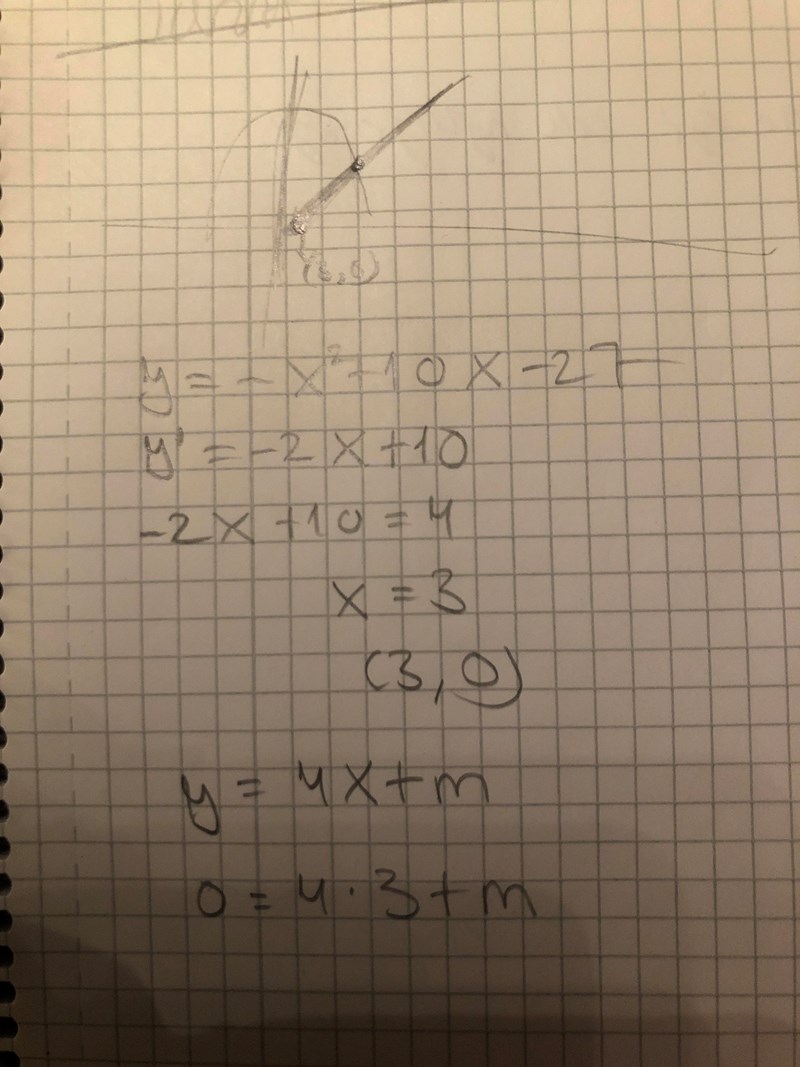 (3,0)
y = -x²+10x-27
y' = -2x+10
-2x+10=4
x = 3
(3,0)
y = 4x+m
0 = 4·3+m